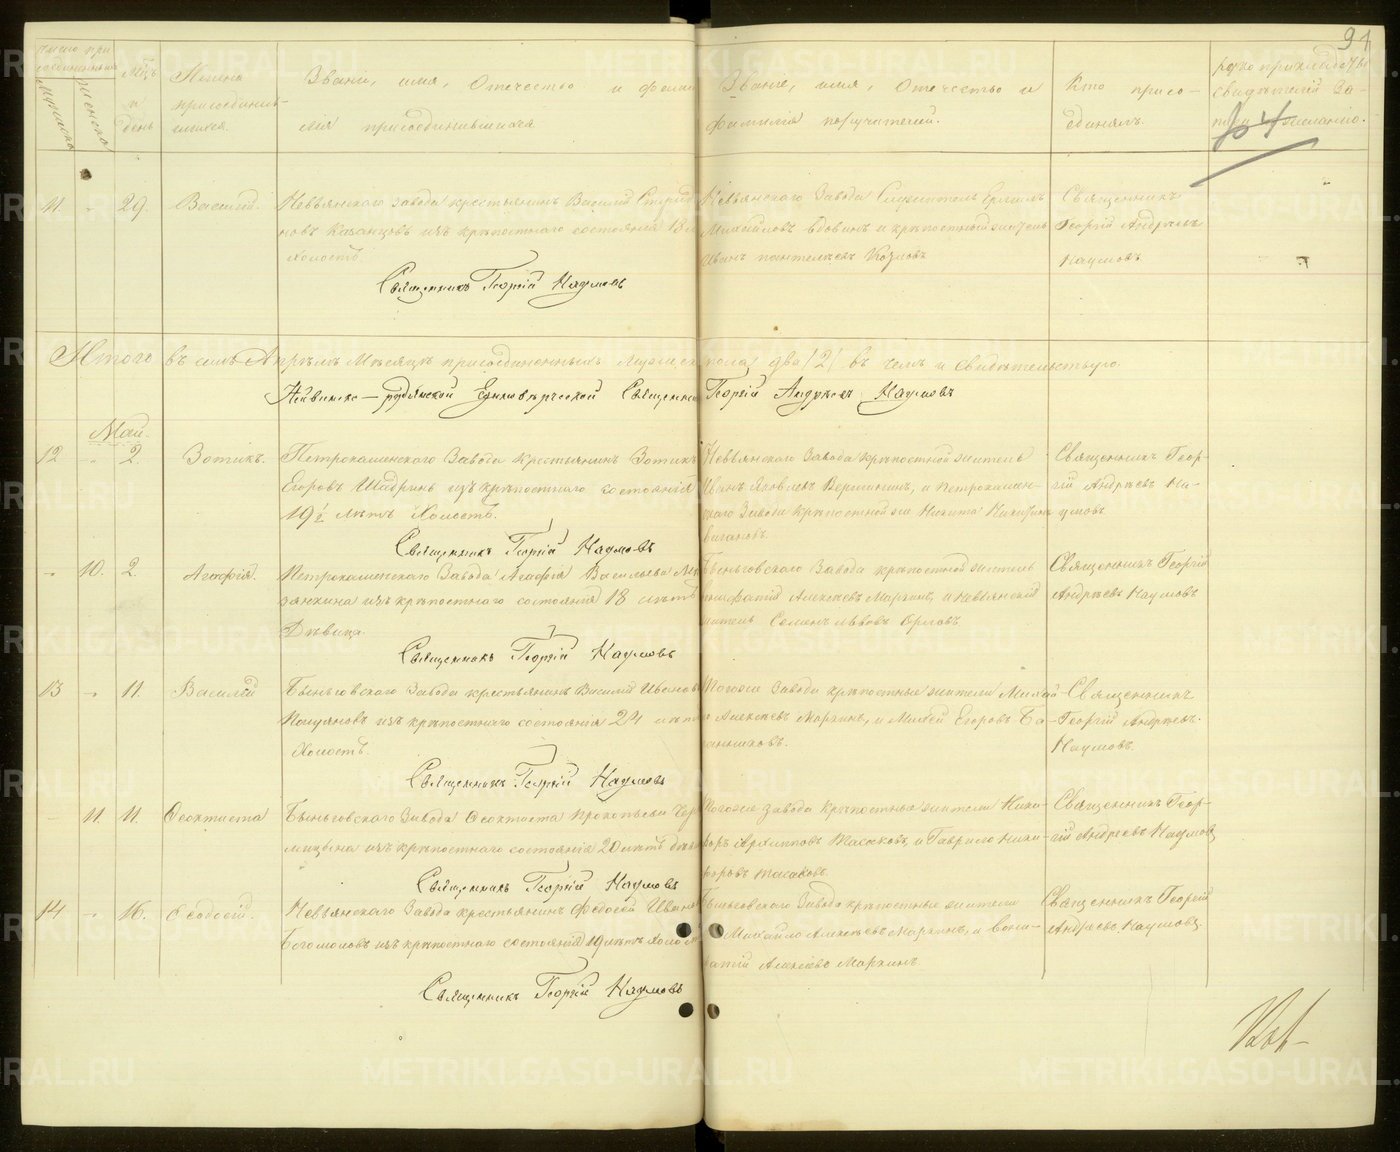 91
число при
соединенныхъ
мужеска
женска
Мѣць
и
день
Имена
присоединив-
шихся.
Званіе, имя, Отчество и фами
лія присоединившихся
Званіе, имя, Отчество и
фамилія поручителей.
Кто присо-
единялъ.
свидѣтелей за-
желанію.
11. 29. Василій.
Невьянскаго Завода крестьянинъ Василій
новъ Казанцовъ изъ крѣпостнаго состоянія 18 л
Холостъ.
Священникъ Георгій Наумовъ
Невьянскаго Завода Служитель
Михайловъ Вдовинъ и крѣпостный житель
Иванъ Пантелѣевъ Козловъ
Священникъ
Георгій Андреевъ
Наумовъ
Итого въ семъ Апрѣлѣ Мѣсяцѣ присоединенныхъ Мужеска пола два /2/ въ чемъ и свидѣтельствую.
Нейвинско-рудянской Единовѣрческой Священникъ Георгій Андреевъ Наумовъ
Май.
12 2. Зотикъ.
Петрокаменскаго Завода крестьянинъ Зотикъ
Егоровъ Шадринъ изъ крѣпостнаго состоянія
19 1/2 лѣтъ Холостъ.
Священникъ Георгій Наумовъ
Невьянскаго Завода крѣпостной житель
Иванъ Яковлевъ Вершининъ, и Петрокамен-
скаго Завода крѣпостной жи Никита
Священникъ Геор-
гій Андреевъ На-
умовъ
10. 2. Агафія.
Петрокаменскаго Завода Агафія Васильева
изъ крѣпостнаго состоянія 18 лѣтъ
Дѣвица.
Священникъ Георгій Наумовъ
Быньговскаго Завода крѣпостной житель
Алексѣевъ Маркинъ, и Невьянскій
житель Семенъ Львовъ Орловъ
Священникъ Георгій
Андреевъ Наумовъ
13 11. Василій
Быньговскаго Завода крестьянинъ Василій Ивановъ
изъ крѣпостнаго состоянія 24 лѣтъ
Холостъ.
Священникъ Георгій Наумовъ
Тогоже Завода крѣпостные жители Михай
Алексѣевъ Маркинъ, и Михей Егоровъ Ба-
Священникъ
Георгій Андреевъ
Наумовъ.
11. 11. Феоктиста
Быньговскаго Завода Феоктиста Прокопьева
изъ крѣпостнаго состоянія 20 лѣтъ
Священникъ Георгій Наумовъ
Тогоже Завода крѣпостные жители Ники-
форъ Архиповъ Масаковъ, и Гаврило Ники-
форовъ Масаковъ.
Священникъ Геор-
гій Андреевъ Наумовъ
14 16. Феодосій.
Невьянскаго Завода крестьянинъ Федосей Ивановъ
Богомоловъ изъ крѣпостнаго состоянія 19 лѣтъ Холо
Священникъ Георгій Наумовъ
Быньговскаго Завода крѣпостные жители
Михайло Алексѣевъ Маркинъ, и Вони-
фатій Алексѣевъ Маркинъ
Священникъ Георгій
Андреевъ Наумовъ.
METRIKI.GASO-URAL.RU